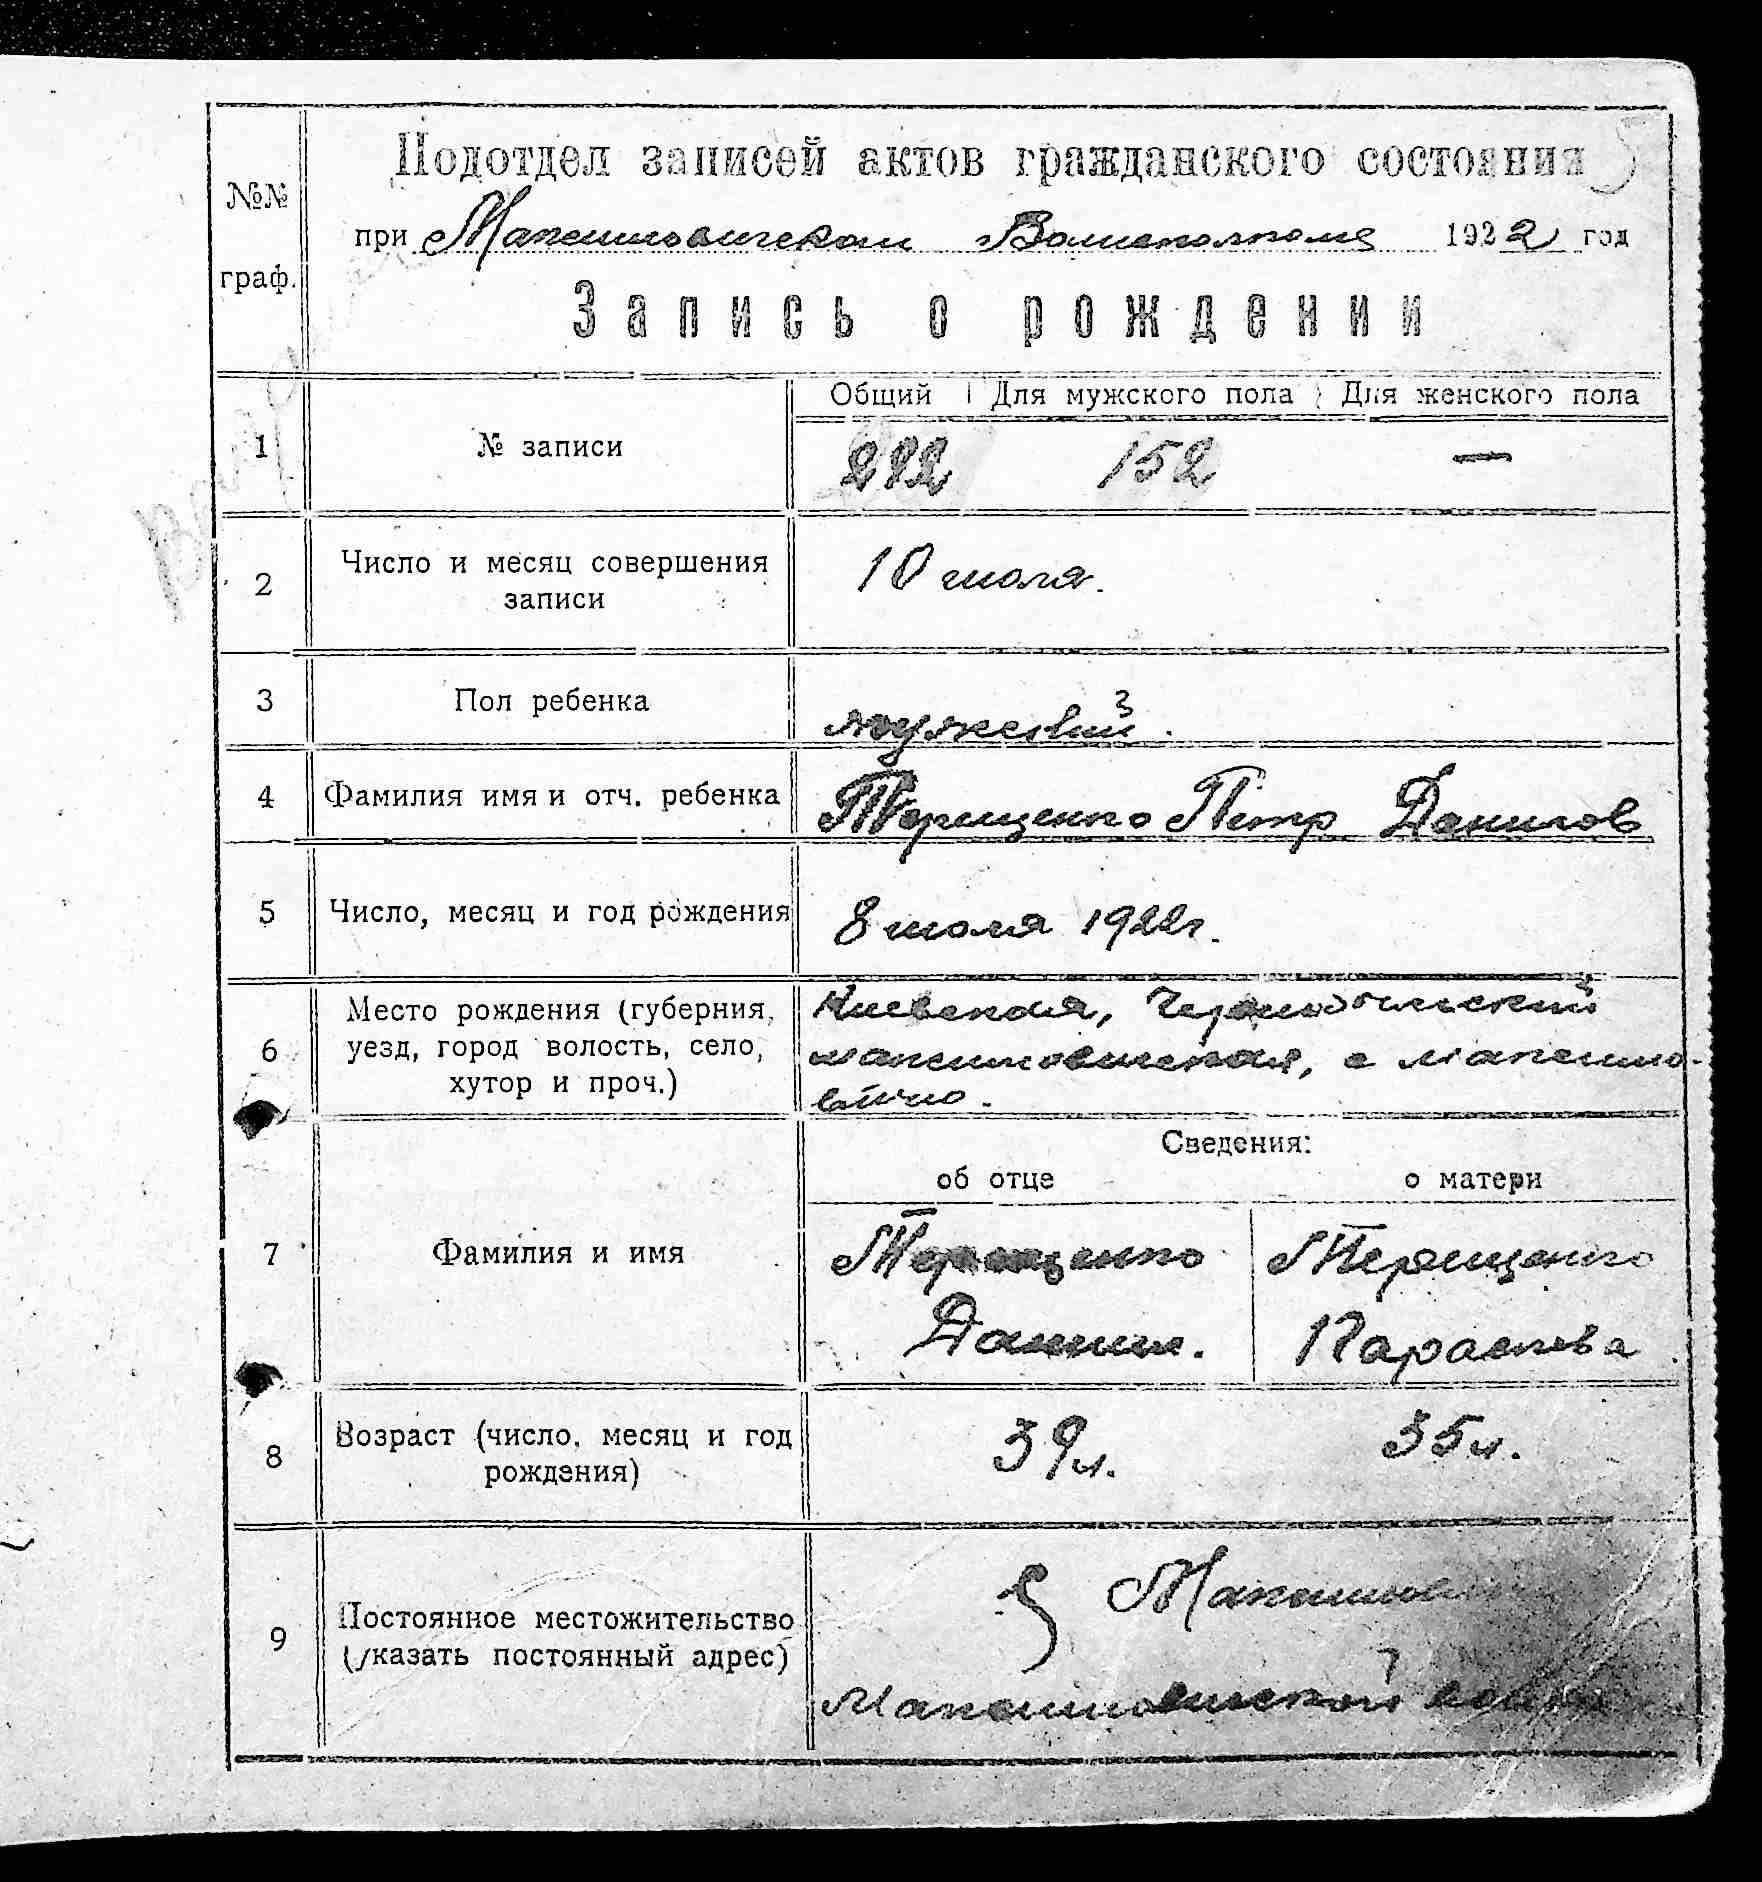 Подотдел записей актов гражданского состояния
№№ граф.
при Максимовическом Волисполкоме 1922 год
Запись о рождении
Общий Для мужского пола Для женского пола
1 № записи 222 152 —
2 Число и месяц совершения записи 10 июля.
3 Пол ребенка мужеский.
4 Фамилия имя и отч. ребенка Терещенко Петр Данилов
5 Число, месяц и год рождения 8 июля 1922 г.
6 Место рождения (губерния, Киевская, Чернобыльский
уезд, город волость, село, максимовическая, с максимо-
хутор и проч.) вичи.
Сведения:
об отце о матери
7 Фамилия и имя Терещенко Терещенко
Даниил. Параскева
8 Возраст (число, месяц и год рождения) 39 л. 35 л.
9 Постоянное местожительство
(указать постоянный адрес)
Максимовической